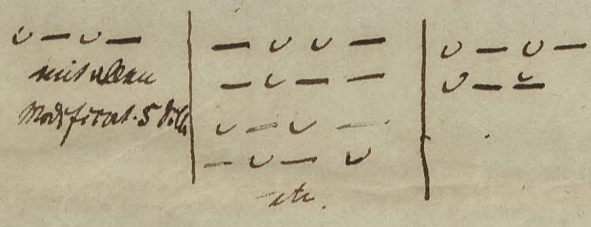 ∪ – ∪ – | – ∪ ∪ – | ∪ – ∪ –
mit allen | – ∪ – – | ∪ – ∪̲
Modificat. 5 | ∪ – ∪ –
– ∪ – ∪
etc.